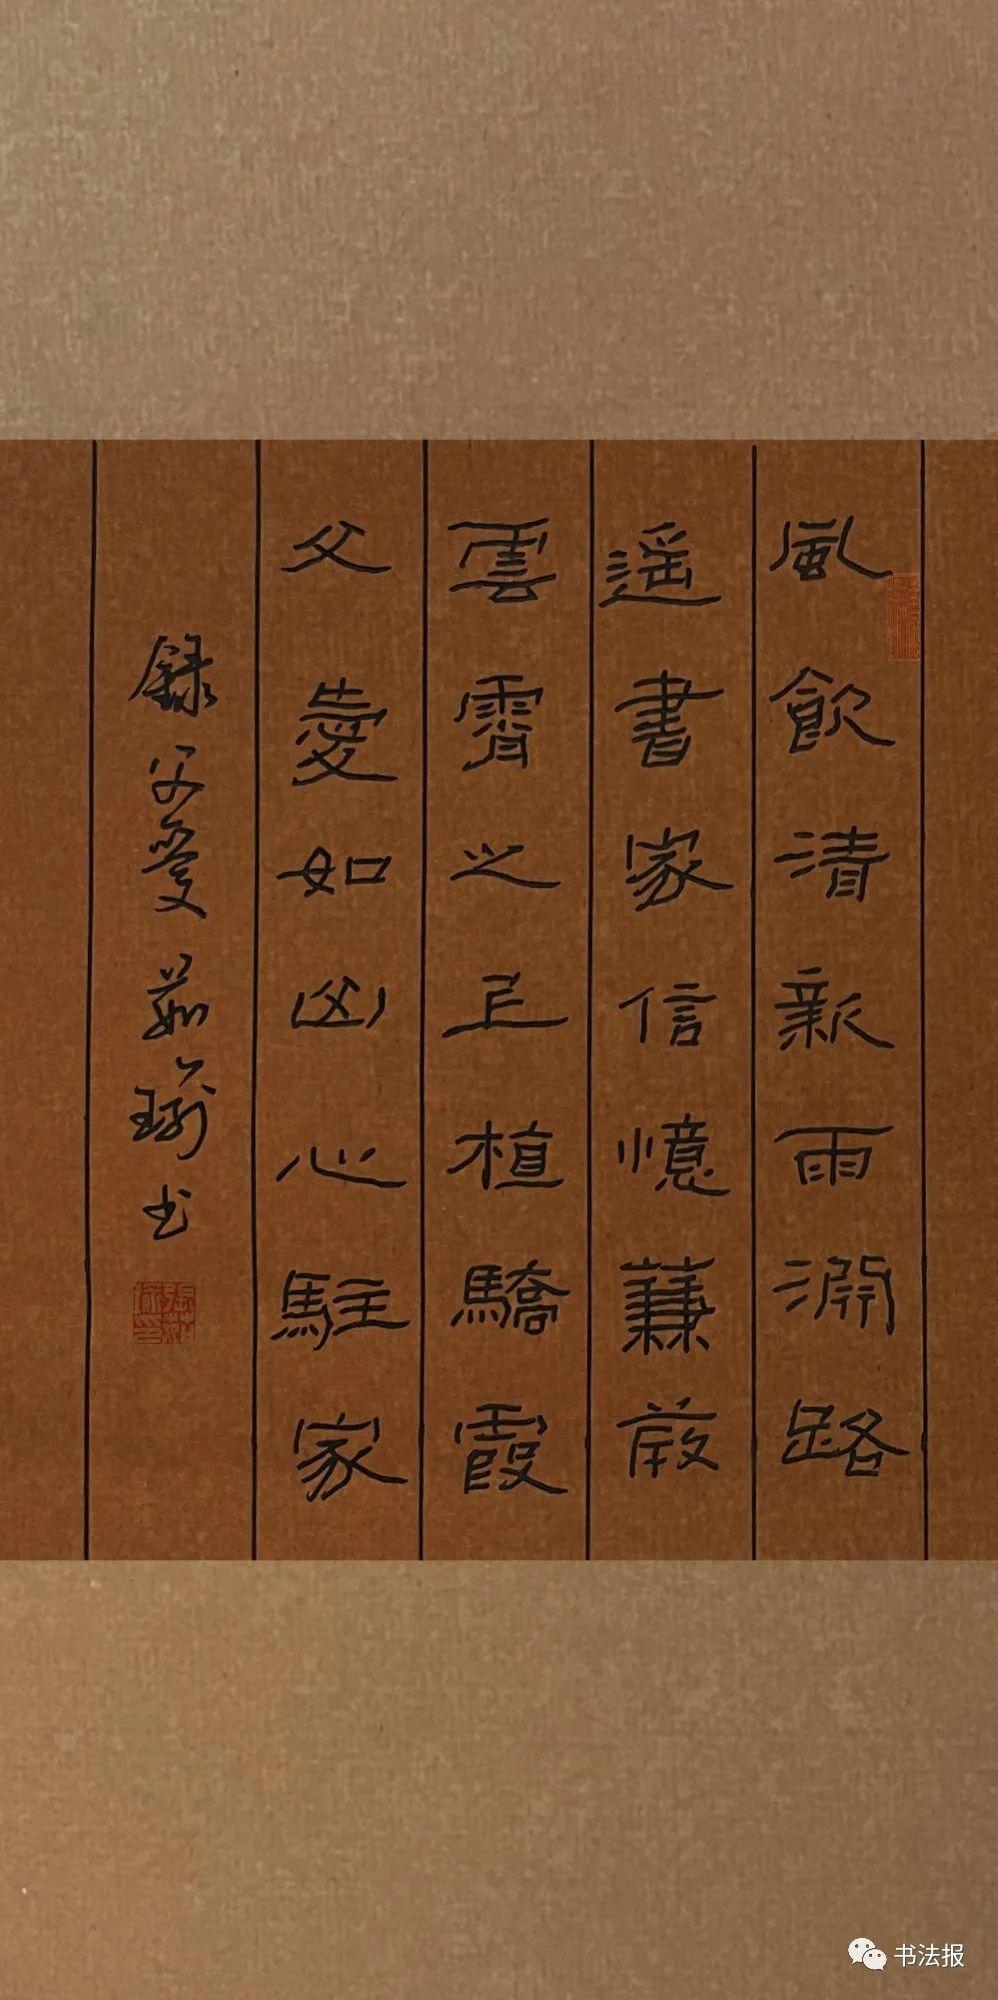 風飲清新雨路
遥書家信憶蒹
雲霄之上植驕霞
父愛如山心駐家
録父愛 茹瑜书
书法报